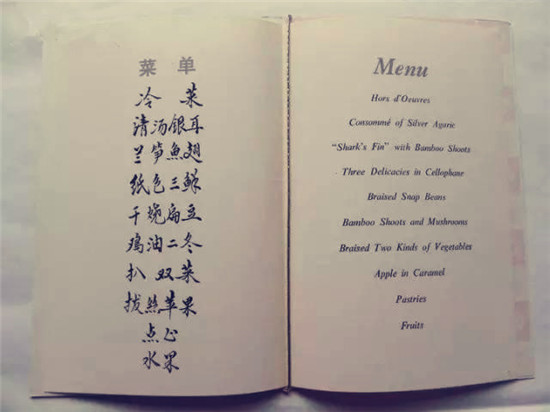 菜单
冷菜
清汤银耳
兰笋魚翅
纸包三鲜
干烧扁豆
鸡油二冬
扒双菜
拔丝苹果
点心
水果
Menu
Hors d'Oeuvres
Consommé of Silver Agaric
"Shark's Fin" with Bamboo Shoots
Three Delicacies in Cellophane
Braised Snap Beans
Bamboo Shoots and Mushrooms
Braised Two Kinds of Vegetables
Apple in Caramel
Pastries
Fruits